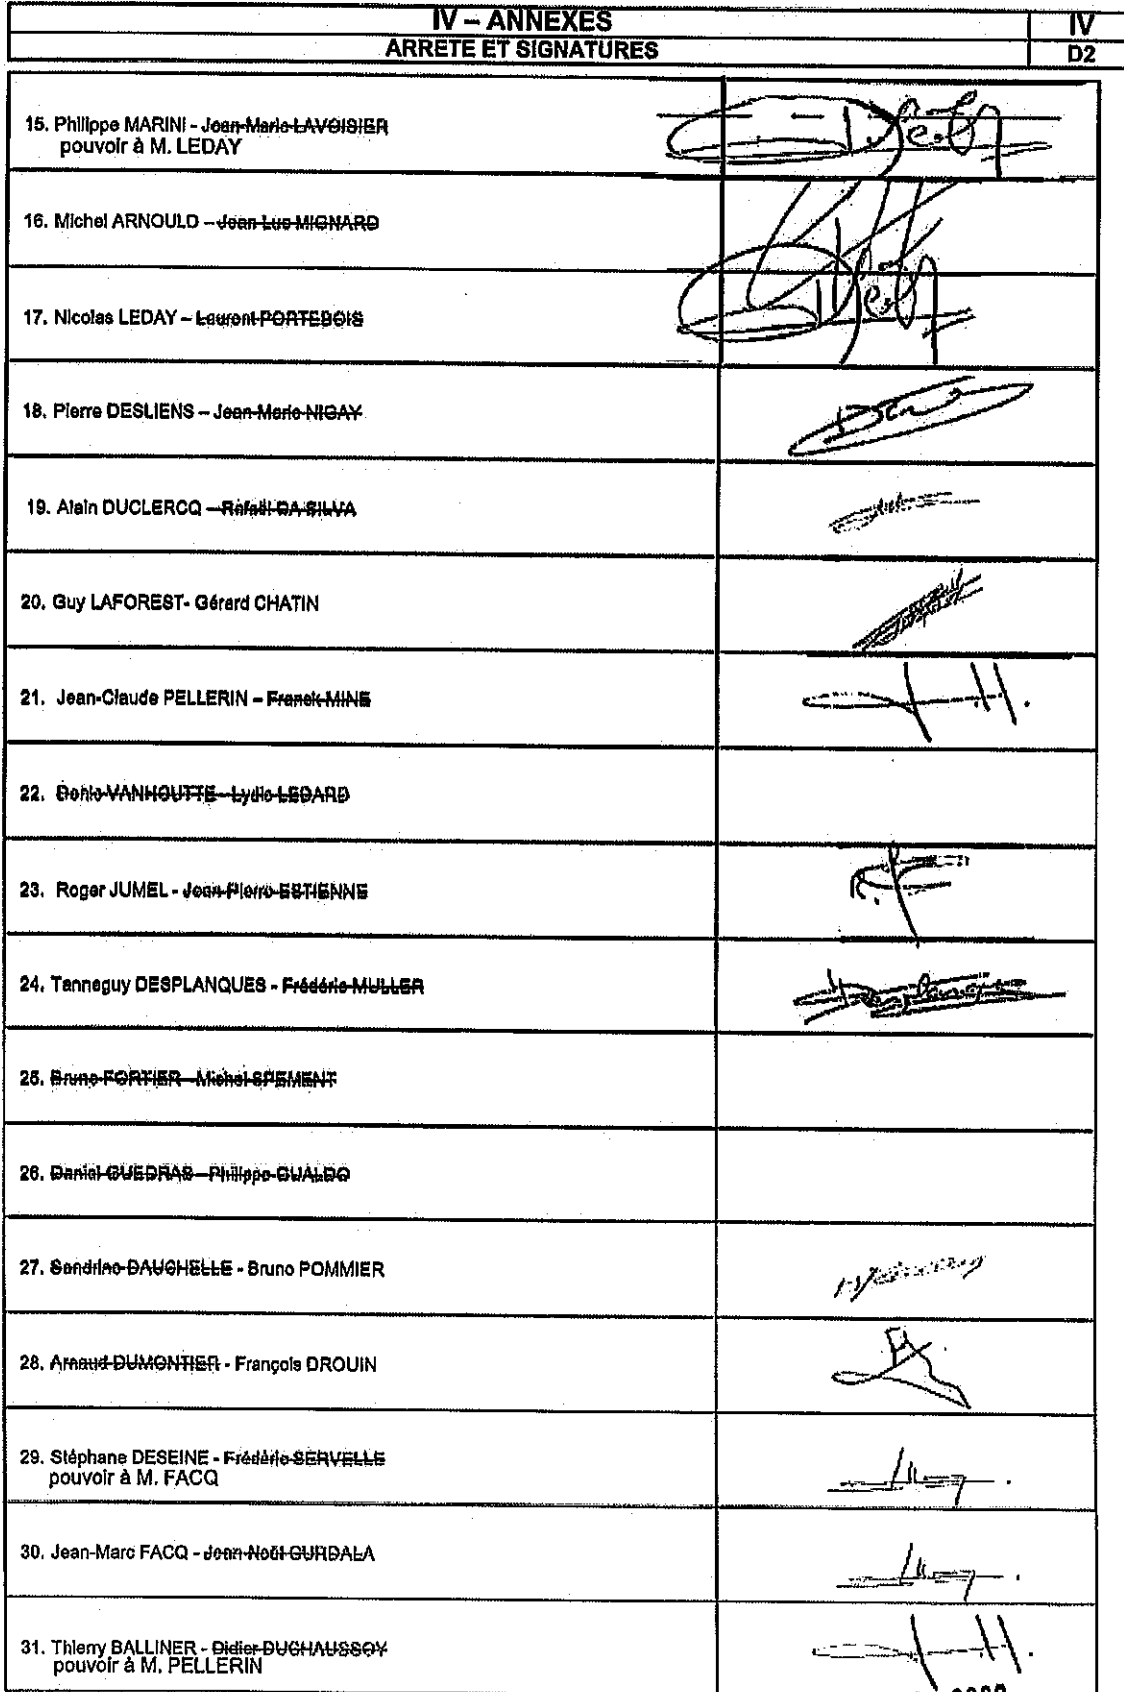 IV – ANNEXES
IV
ARRETE ET SIGNATURES
D2
15. Philippe MARINI - Jean-Marie LAVOISIER
pouvoir à M. LEDAY
16. Michel ARNOULD – Jean-Luc MIGNARD
17. Nicolas LEDAY – Laurent PORTEBOIS
18. Pierre DESLIENS – Jean-Marie NIGAY
19. Alain DUCLERCQ – Rafaël DA SILVA
20. Guy LAFOREST- Gérard CHATIN
21. Jean-Claude PELLERIN – Franck MINE
22. VANHOUTTE – Lydie LEGARD
23. Roger JUMEL - Jean-Pierre ESTIENNE
24. Tanneguy DESPLANQUES - Frédéric MULLER
25. Bruno FORTIER – Michel SPEMENT
26. Daniel GUEDRAS – Philippe GUALDO
27. Sandrine DAUCHELLE - Bruno POMMIER
28. Arnaud DUMONTIER - François DROUIN
29. Stéphane DESEINE - Frédéric SERVELLE
pouvoir à M. FACQ
30. Jean-Marc FACQ - Jean-Noël GURDALA
31. Thierry BALLINER - Didier DUCHAUSSOY
pouvoir à M. PELLERIN